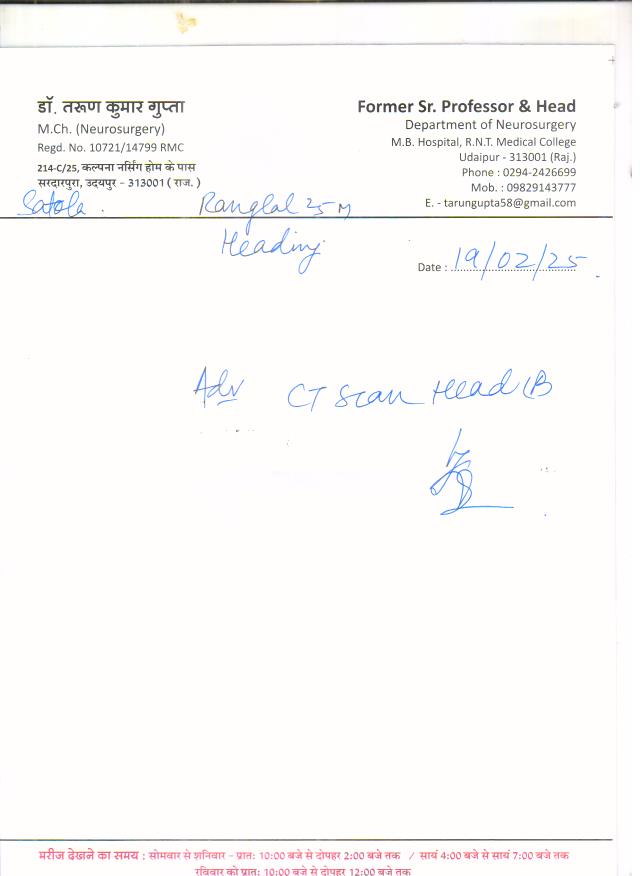 डॉ. तरूण कुमार गुप्ता
M.Ch. (Neurosurgery)
Regd. No. 10721/14799 RMC
214-C/25, कल्पना नर्सिंग होम के पास
सरदारपुरा, उदयपुर – 313001 ( राज. )
Former Sr. Professor & Head
Department of Neurosurgery
M.B. Hospital, R.N.T. Medical College
Udaipur - 313001 (Raj.)
Phone : 0294-2426699
Mob. : 09829143777
E. - tarungupta58@gmail.com
Satola. Ranglal 25 M
Heading
Date : 19/02/25
Adv CT Scan Head
मरीज देखने का समय : सोमवार से शनिवार – प्रात: 10:00 बजे से दोपहर 2:00 बजे तक / सायं 4:00 बजे से सायं 7:00 बजे तक
रविवार को प्रात: 10:00 बजे से दोपहर 12:00 बजे तक